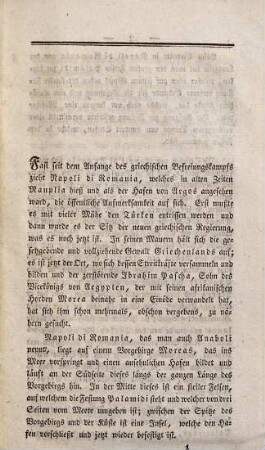 Fast seit dem Anfange des griechischen Befreiungskampfs
zieht Napoli di Romania, welches in alten Zeiten
Nauplia hieß und als der Hafen von Argos angesehen
ward, die öffentliche Aufmerksamkeit auf sich. Erst mußte
es mit vieler Mühe den Türken entrissen werden und
dann wurde es der Sitz der neuen griechischen Regierung,
was es noch jetzt ist. In seinen Mauern hält sich die ge-
setzgebende und vollziehende Gewalt Griechenlands auf;
es ist jetzt der Ort, wo sich dessen Streitkräfte versammeln und
bilden und der zerstörende Ibrahim Pascha, Sohn des
Vicekönigs von Aegypten, der mit seinen afrikanischen
Horden Morea beinahe in eine Einöde verwandelt hat,
hat sich ihm schon mehrmals, obschon vergebens, zu nä-
hern gesucht.
Napoli di Romania, das man auch Anaboli
nennt, liegt auf einem Vorgebirge Moreas, das ins
Meer vorspringt und einen ansehnlichen Hafen bildet und
läuft an der Südseite dieses längs der ganzen Länge des
Vorgebirgs hin. In der Mitte dieses ist ein steiler Felsen,
auf welchem die Festung Palamidi steht und welcher von drei
Seiten vom Meere umgeben ist; zwischen der Spitze des
Vorgebirgs und der Küste ist eine Insel, welche den Ha-
fen verschließt und jetzt wieder befestigt ist.
1